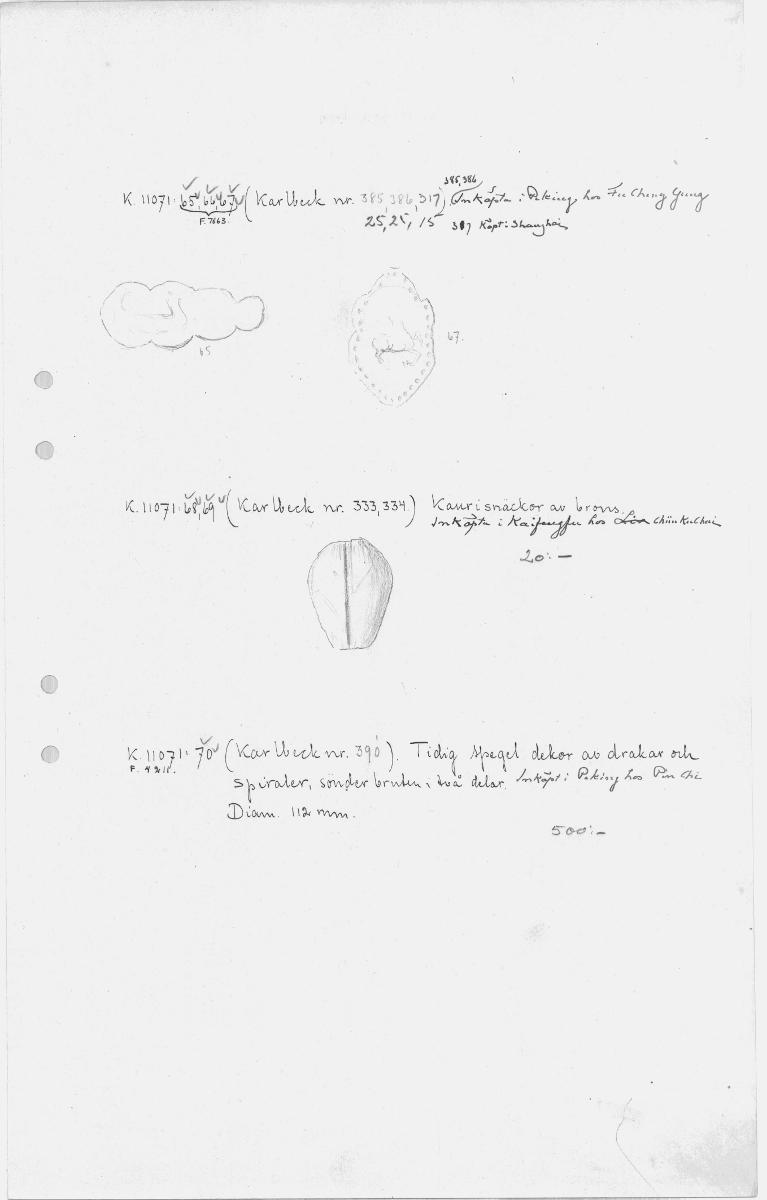 385,386
K. 11071: 65, 66, 67 (Karlbeck nr. 385, 386, 317) Inköpta i Peking hos Fu Cheng Yung
F. 7863. 25, 25, 15 317 köpt i Shanghai
65 67.
K. 11071: 68, 69 (Karlbeck nr. 333, 334.) Kaurisnäckor av brons.
Inköpta i Kaifengfu hos Chün Ku Chai
20:-
K. 11071: 70 (Karlbeck nr. 390). Tidig spegel dekor av drakar och
F.
spiraler, sönderbruten i två delar. Inköpt i Peking hos Pin Chi
Diam. 112 mm.
500:-